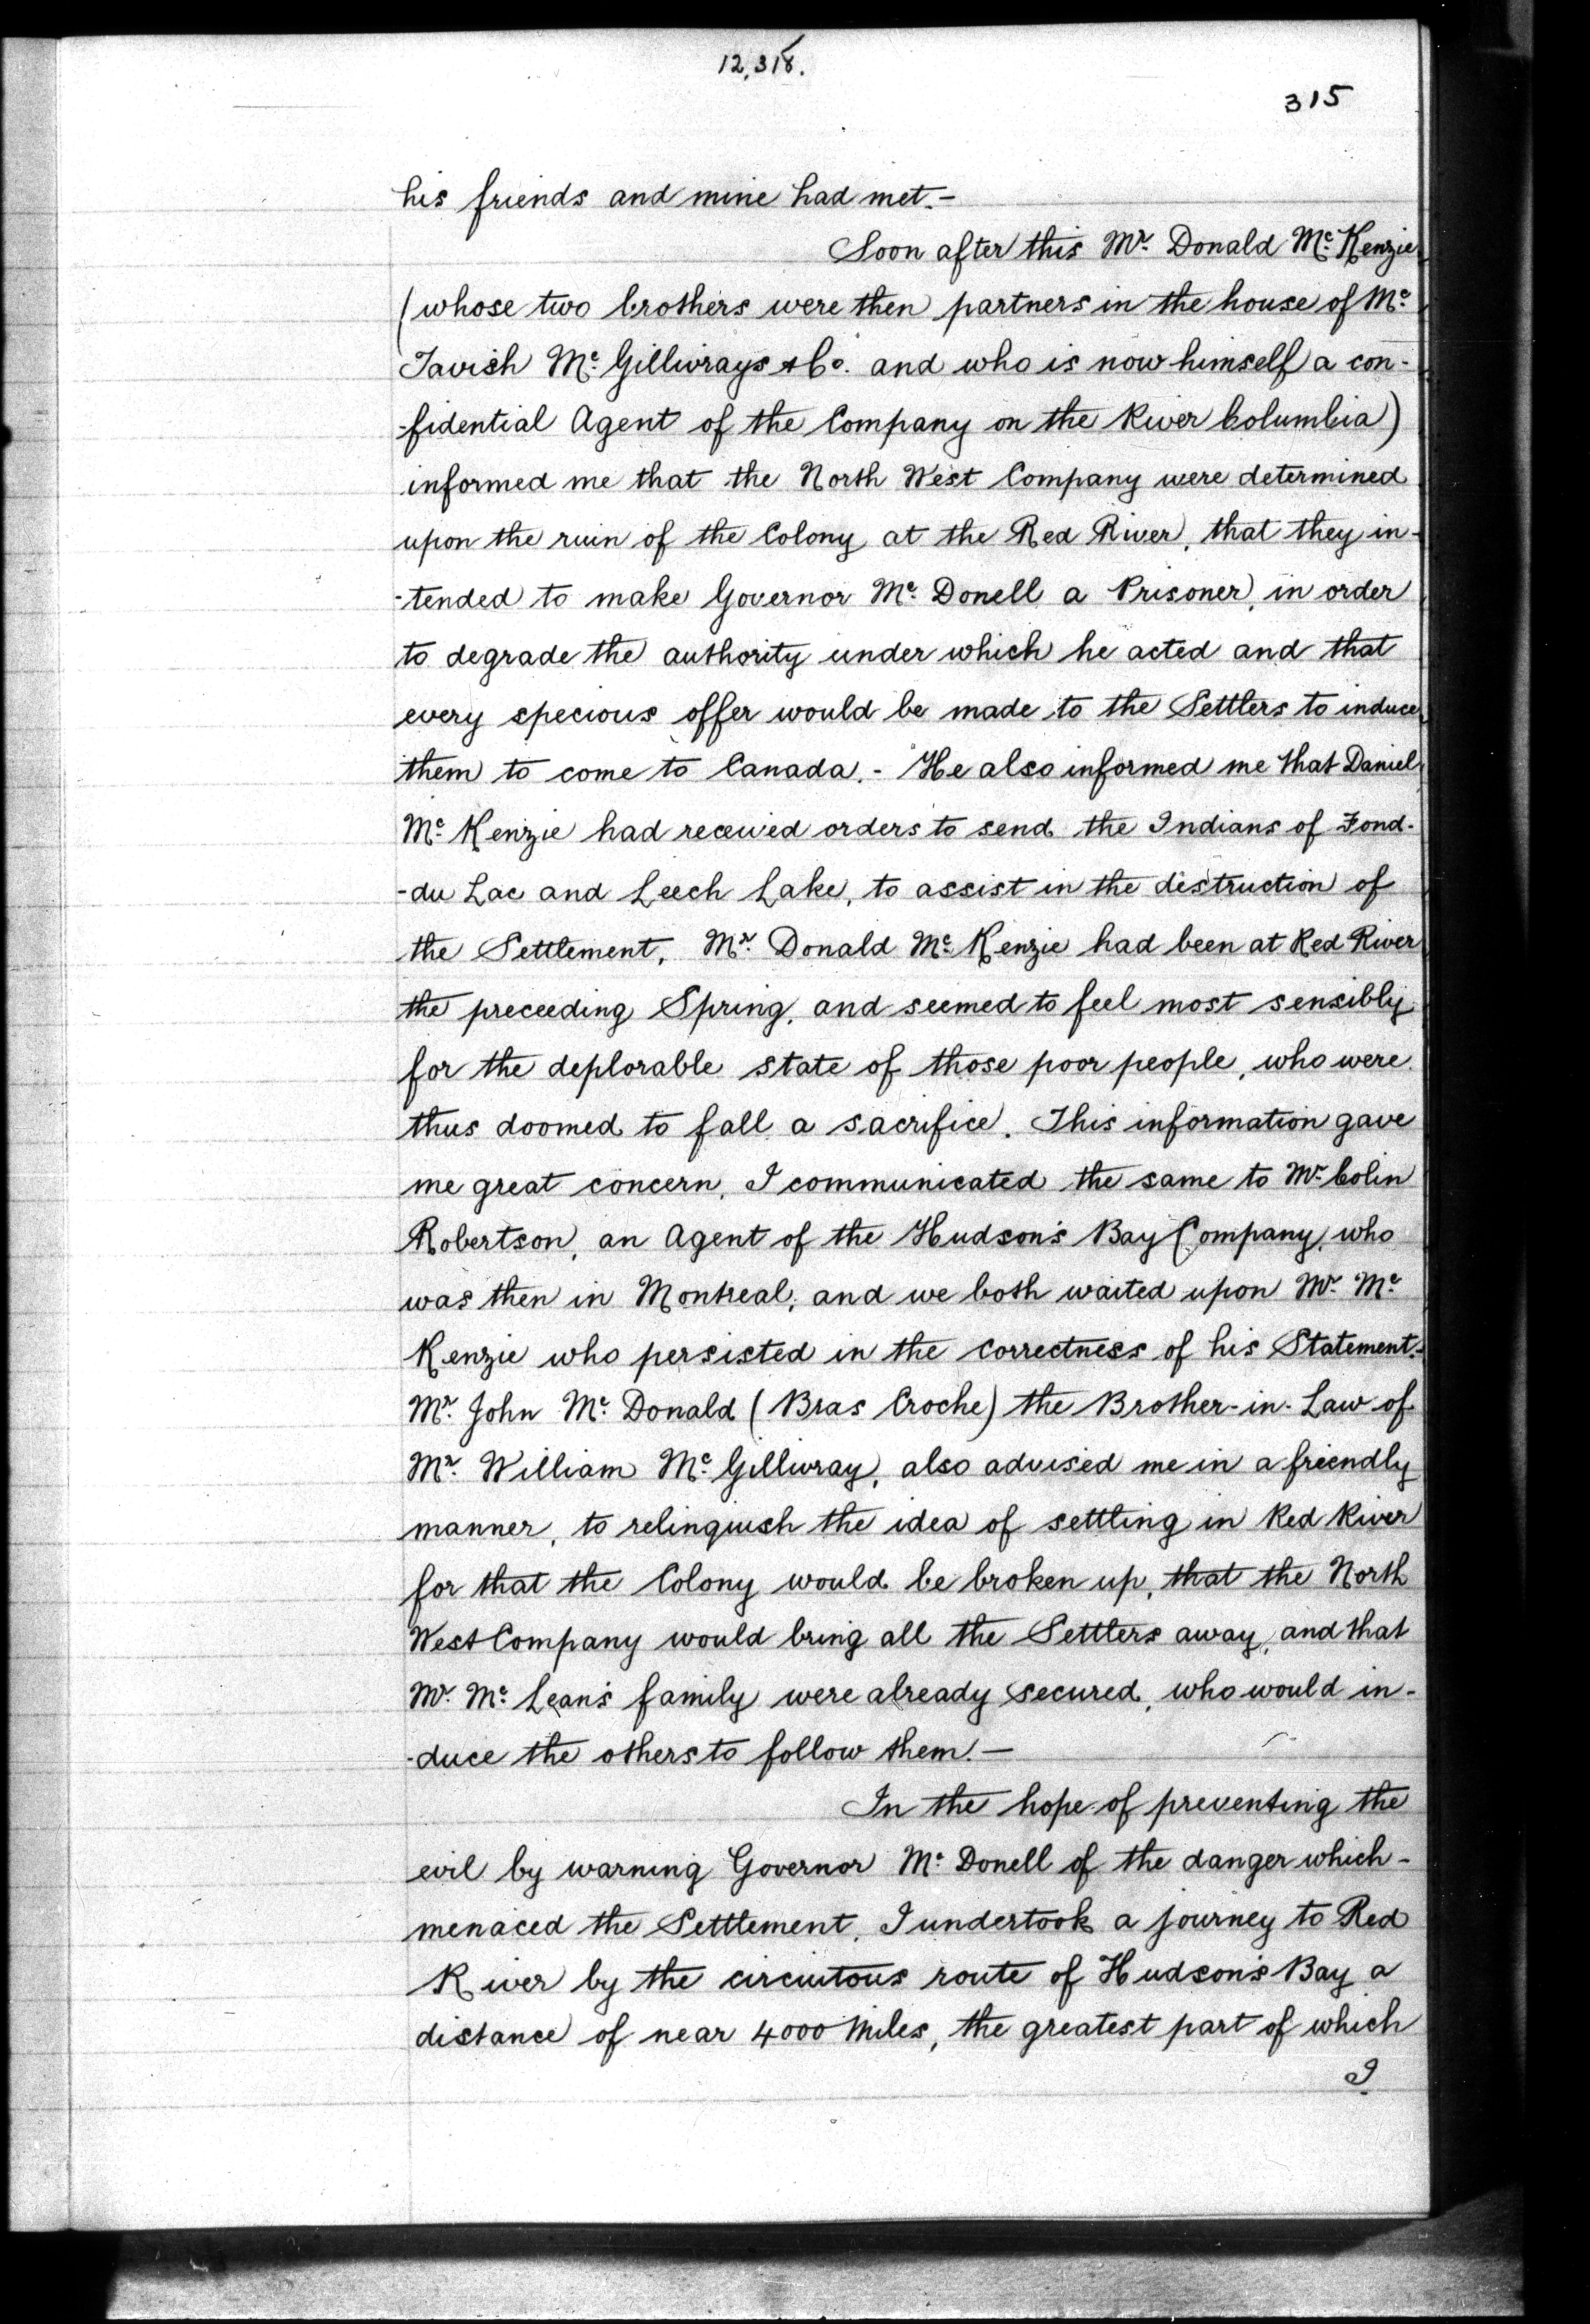 12,318.
315
his friends and mine had met.-
Soon after this Mr. Donald Mc. Kenzie
(whose two brothers were then partners in the house of Mc.
Tavish Mc. Gillivrays & Co. and who is now himself a con-
-fidential Agent of the Company on the River Columbia)
informed me that the North West Company were determined
upon the ruin of the Colony at the Red River, that they in-
-tended to make Governor Mc. Donell a Prisoner, in order
to degrade the authority under which he acted and that
every specious offer would be made to the Settlers to induce
them to come to Canada.- He also informed me that Daniel
Mc. Kenzie had received orders to send the Indians of Fond-
-du Lac and Leech Lake, to assist in the destruction of
the Settlement. Mr. Donald Mc. Kenzie had been at Red River
the preceeding Spring, and seemed to feel most sensibly
for the deplorable state of those poor people, who were
thus doomed to fall a sacrifice. This information gave
me great concern. I communicated the same to Mr. Colin
Robertson, an Agent of the Hudson's Bay Company, who
was then in Montreal, and we both waited upon Mr. Mc.
Kenzie who persisted in the correctness of his Statement.-
Mr. John Mc. Donald (Bras Croche) the Brother-in-Law of
Mr. William Mc. Gillivray, also advised me in a friendly
manner, to relinquish the idea of settling in Red River
for that the Colony would be broken up, that the North
West Company would bring all the Settlers away, and that
Mr. Mc. Lean's family were already secured, who would in-
-duce the others to follow them.-
In the hope of preventing the
evil by warning Governor Mc. Donell of the danger which-
menaced the Settlement, I undertook a journey to Red
River by the circuitous route of Hudson's Bay a
distance of near 4000 Miles, the greatest part of which
I